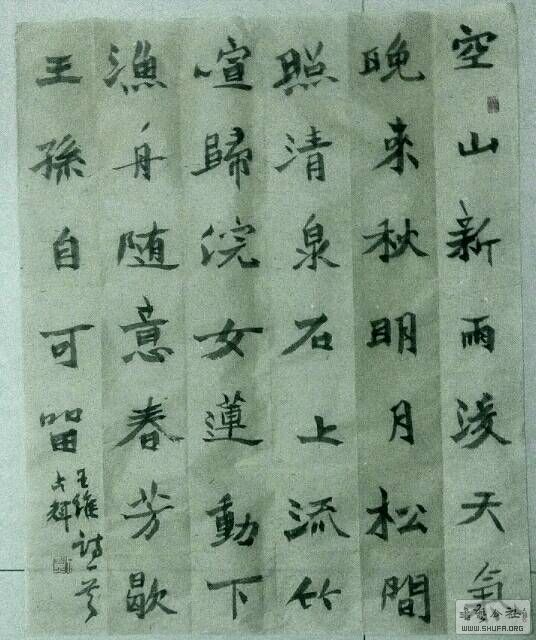 空山新雨後天氣
晚来秋明月松間
照清泉石上流竹
喧歸浣女蓮動下
漁舟随意春芳歇
王孫自可留
王維詩一首
書藝公社
WWW.SHUFA.ORG